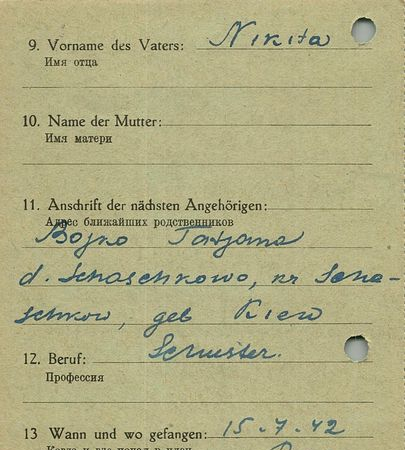 9. Vorname des Vaters: Nikita
Имя отца
10. Name der Mutter:
Имя матери
11. Anschrift der nächsten Angehörigen:
Адрес ближайших родственников
Bojko Tatjana
d. Schaschkowo, kr Scha-
schkow, geb Kiew
12. Beruf: Schuster.
Профессия
13 Wann und wo gefangen: 15.7.42
Когда и где попал в плен